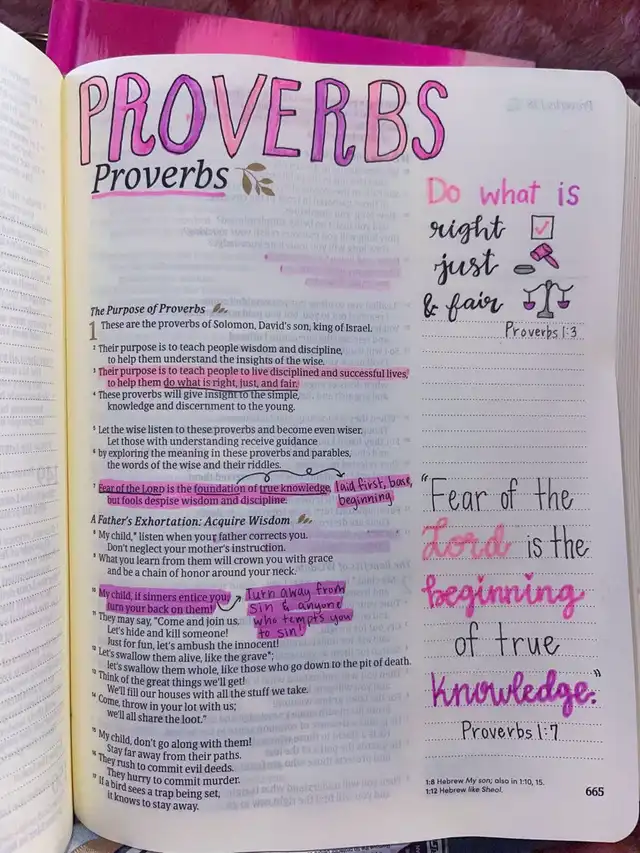 PROVERBS
Proverbs
Do what is
right
just
& fair
Proverbs 1:3
The Purpose of Proverbs
1 These are the proverbs of Solomon, David's son, king of Israel.
2 Their purpose is to teach people wisdom and discipline,
to help them understand the insights of the wise.
3 Their purpose is to teach people to live disciplined and successful lives,
to help them do what is right, just, and fair.
4 These proverbs will give insight to the simple,
knowledge and discernment to the young.
5 Let the wise listen to these proverbs and become even wiser.
Let those with understanding receive guidance
6 by exploring the meaning in these proverbs and parables,
the words of the wise and their riddles.
7 Fear of the LORD is the foundation of true knowledge,
but fools despise wisdom and discipline.
laid first, base,
beginning
A Father's Exhortation: Acquire Wisdom
8 My child,* listen when your father corrects you.
Don't neglect your mother's instruction.
9 What you learn from them will crown you with grace
and be a chain of honor around your neck.
10 My child, if sinners entice you,
turn your back on them!
Turn away from
sin & anyone
who tempts you
to sin!
11 They may say, "Come and join us.
Let's hide and kill someone!
Just for fun, let's ambush the innocent!
12 Let's swallow them alive, like the grave*;
let's swallow them whole, like those who go down to the pit of death.
13 Think of the great things we'll get!
We'll fill our houses with all the stuff we take.
14 Come, throw in your lot with us;
we'll all share the loot."
15 My child, don't go along with them!
Stay far away from their paths.
16 They rush to commit evil deeds.
They hurry to commit murder.
17 If a bird sees a trap being set,
it knows to stay away.
"Fear of the
Lord is the
beginning
of true
knowledge."
Proverbs 1:7
1:8 Hebrew My son; also in 1:10, 15.
1:12 Hebrew like Sheol.
665